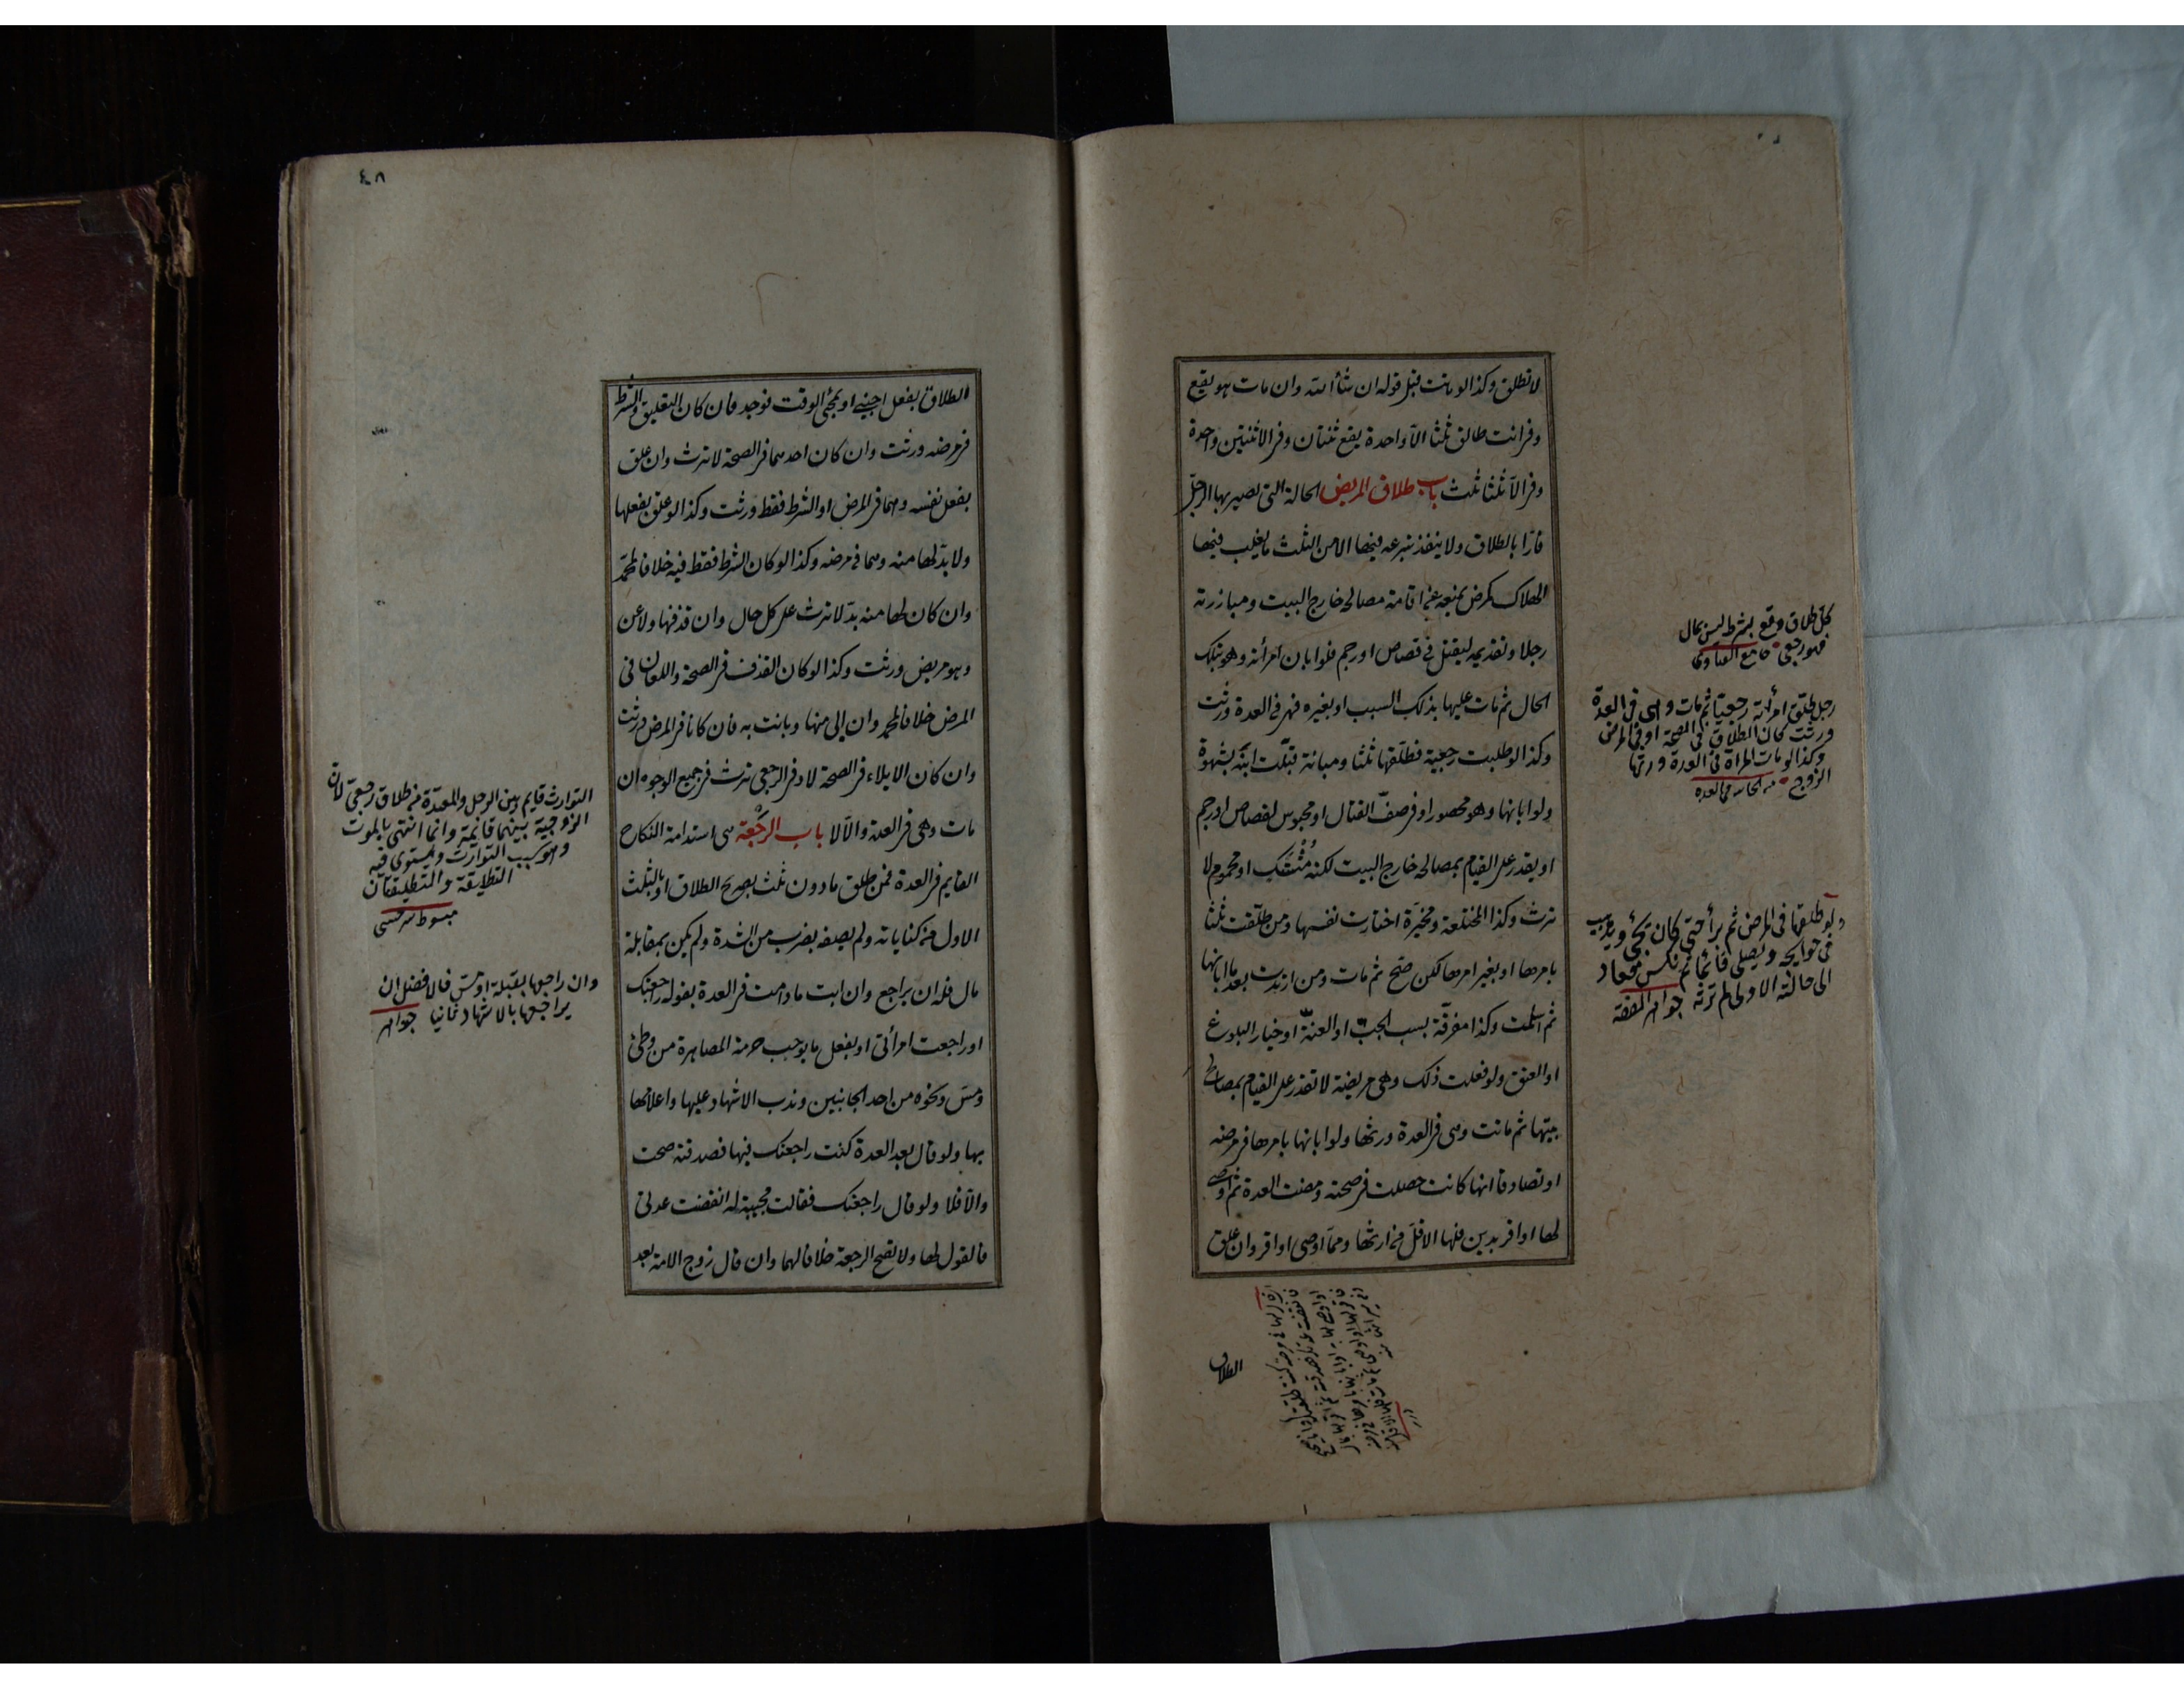 لا تطلق وكذا لو ماتت قبل قوله ان شأ الله وان مات هو يقع
وفى انت طالق ثلثا الا واحدة يقع ثنتان وفى الا ثنتين واحدة
وفى الا ثلثا ثلث باب طلاق المريض الحالة التى يصير بها الرجل
فارا بالطلاق ولا ينفذ تبرعه فيها الا من الثلث ما يغلب فيها
الهلاك كمرض يمنعه عن اقامة مصالحه خارج البيت ومبارزته
رجلا وتقديمه ليقتل فى قصاص او رجم فلو ابان امرأته وهو بتلك
الحال ثم مات عليها بذلك السبب او بغيره فهى فى العدة ورثت
وكذا لو طلبت رجعية فطلقها ثلثا ومبانة قبلت ابنه بشهوة
ولو ابانها وهو محصور او فى صف القتال او محبوس لقصاص او رجم
او يقدر على القيام بمصالحه خارج البيت لكنه مشتك او محموم لا
ترث وكذا المختلعة ومخيرة اختارت نفسها ومن طلقت ثلثا
بامرها او بغير امرها لكن صح ثم مات ومن ارتدت بعد ما ابانها
ثم اسلمت وكذا مفرقة بسبب الجب او العنة او خيار البلوغ
او العتق ولو فعلت ذلك وهى مريضة لا تقدر على القيام بمصالح
بيتها ثم ماتت وهى فى العدة ورثها ولو ابانها بامرها فى مرضه
او تصادقا انها كانت حصلت فى صحته ومضت العدة ثم اوصى
لها او اقر بدين فلها الاقل من ارثها ومما اوصى او اقر وان علق
كل طلاق وقع بشرط ليس بمال
فهو رجعى جامع الفتاوى
رجل طلق امرأته رجعيا ثم مات وهى فى العدة
ورثت كان الطلاق فى الصحة او فى المرض
وكذا لو مات المرأة فى العدة ورثها
الزوج
ولو طلقها فى المرض ثم برأ حتى كان يجئ ويذهب
فى حوايجه ويصلى قائما ثم نكس فعاد
الى حالته الاولى لم ترثه جواهر الفقه
الطلاق
٤٨
الطلاق بفعل اجنبى او بمجئ الوقت فوجد فان كان التعليق والشرط
فى مرضه ورثت وان كان احدهما فى الصحة لا ترث وان علق
بفعل نفسه وهما فى المرض او الشرط فقط ورثت وكذا لو علق بفعلها
ولا بد لها منه وهما فى مرضه وكذا لو كان الشرط فقط فيه خلافا لمحمد
وان كان لها منه بد لا ترث على كل حال وان قذفها ولاعن
وهو مريض ورثت وكذا لو كان القذف فى الصحة واللعان فى
المرض خلافا لمحمد وان الى منها وبانت به فان كانا فى المرض ورثت
وان كان الايلاء فى الصحة لا وفى الرجعى ترث فى جميع الوجوه ان
مات وهى فى العدة والا لا باب الرجعة هى استدامة النكاح
القايم فى العدة فمن طلق ما دون ثلث بصريح الطلاق او بالثلث
الاول من كناياته ولم يصفه بضرب من الشدة ولم يكن بمقابلة
مال فله ان يراجع وان ابت ما دامت فى العدة بقوله راجعتك
او راجعت امرأتى او بفعل ما يوجب حرمة المصاهرة من وطئ
ومس ونحوه من احد الجانبين وندب الاشهاد عليها واعلامها
بها ولو قال بعد العدة كنت راجعتك فيها فصدقته صحت
والا فلا ولو قال راجعتك فقالت مجيبة له انقضت عدتى
فالقول لها ولا تصح الرجعة خلافا لهما وان قال زوج الامة بعد
التوارث قايم بين الرجل والمعتدة من طلاق رجعى لان
الزوجية بينهما قائمة وانما انتهى بالموت
وهو سبب التوارث ويستوى فيه
التطليقة والتطليقتان
مبسوط سرخسى
وان راجعها بقبلة او مس فالافضل ان
يراجعها بالاشهاد ثانيا جواهر